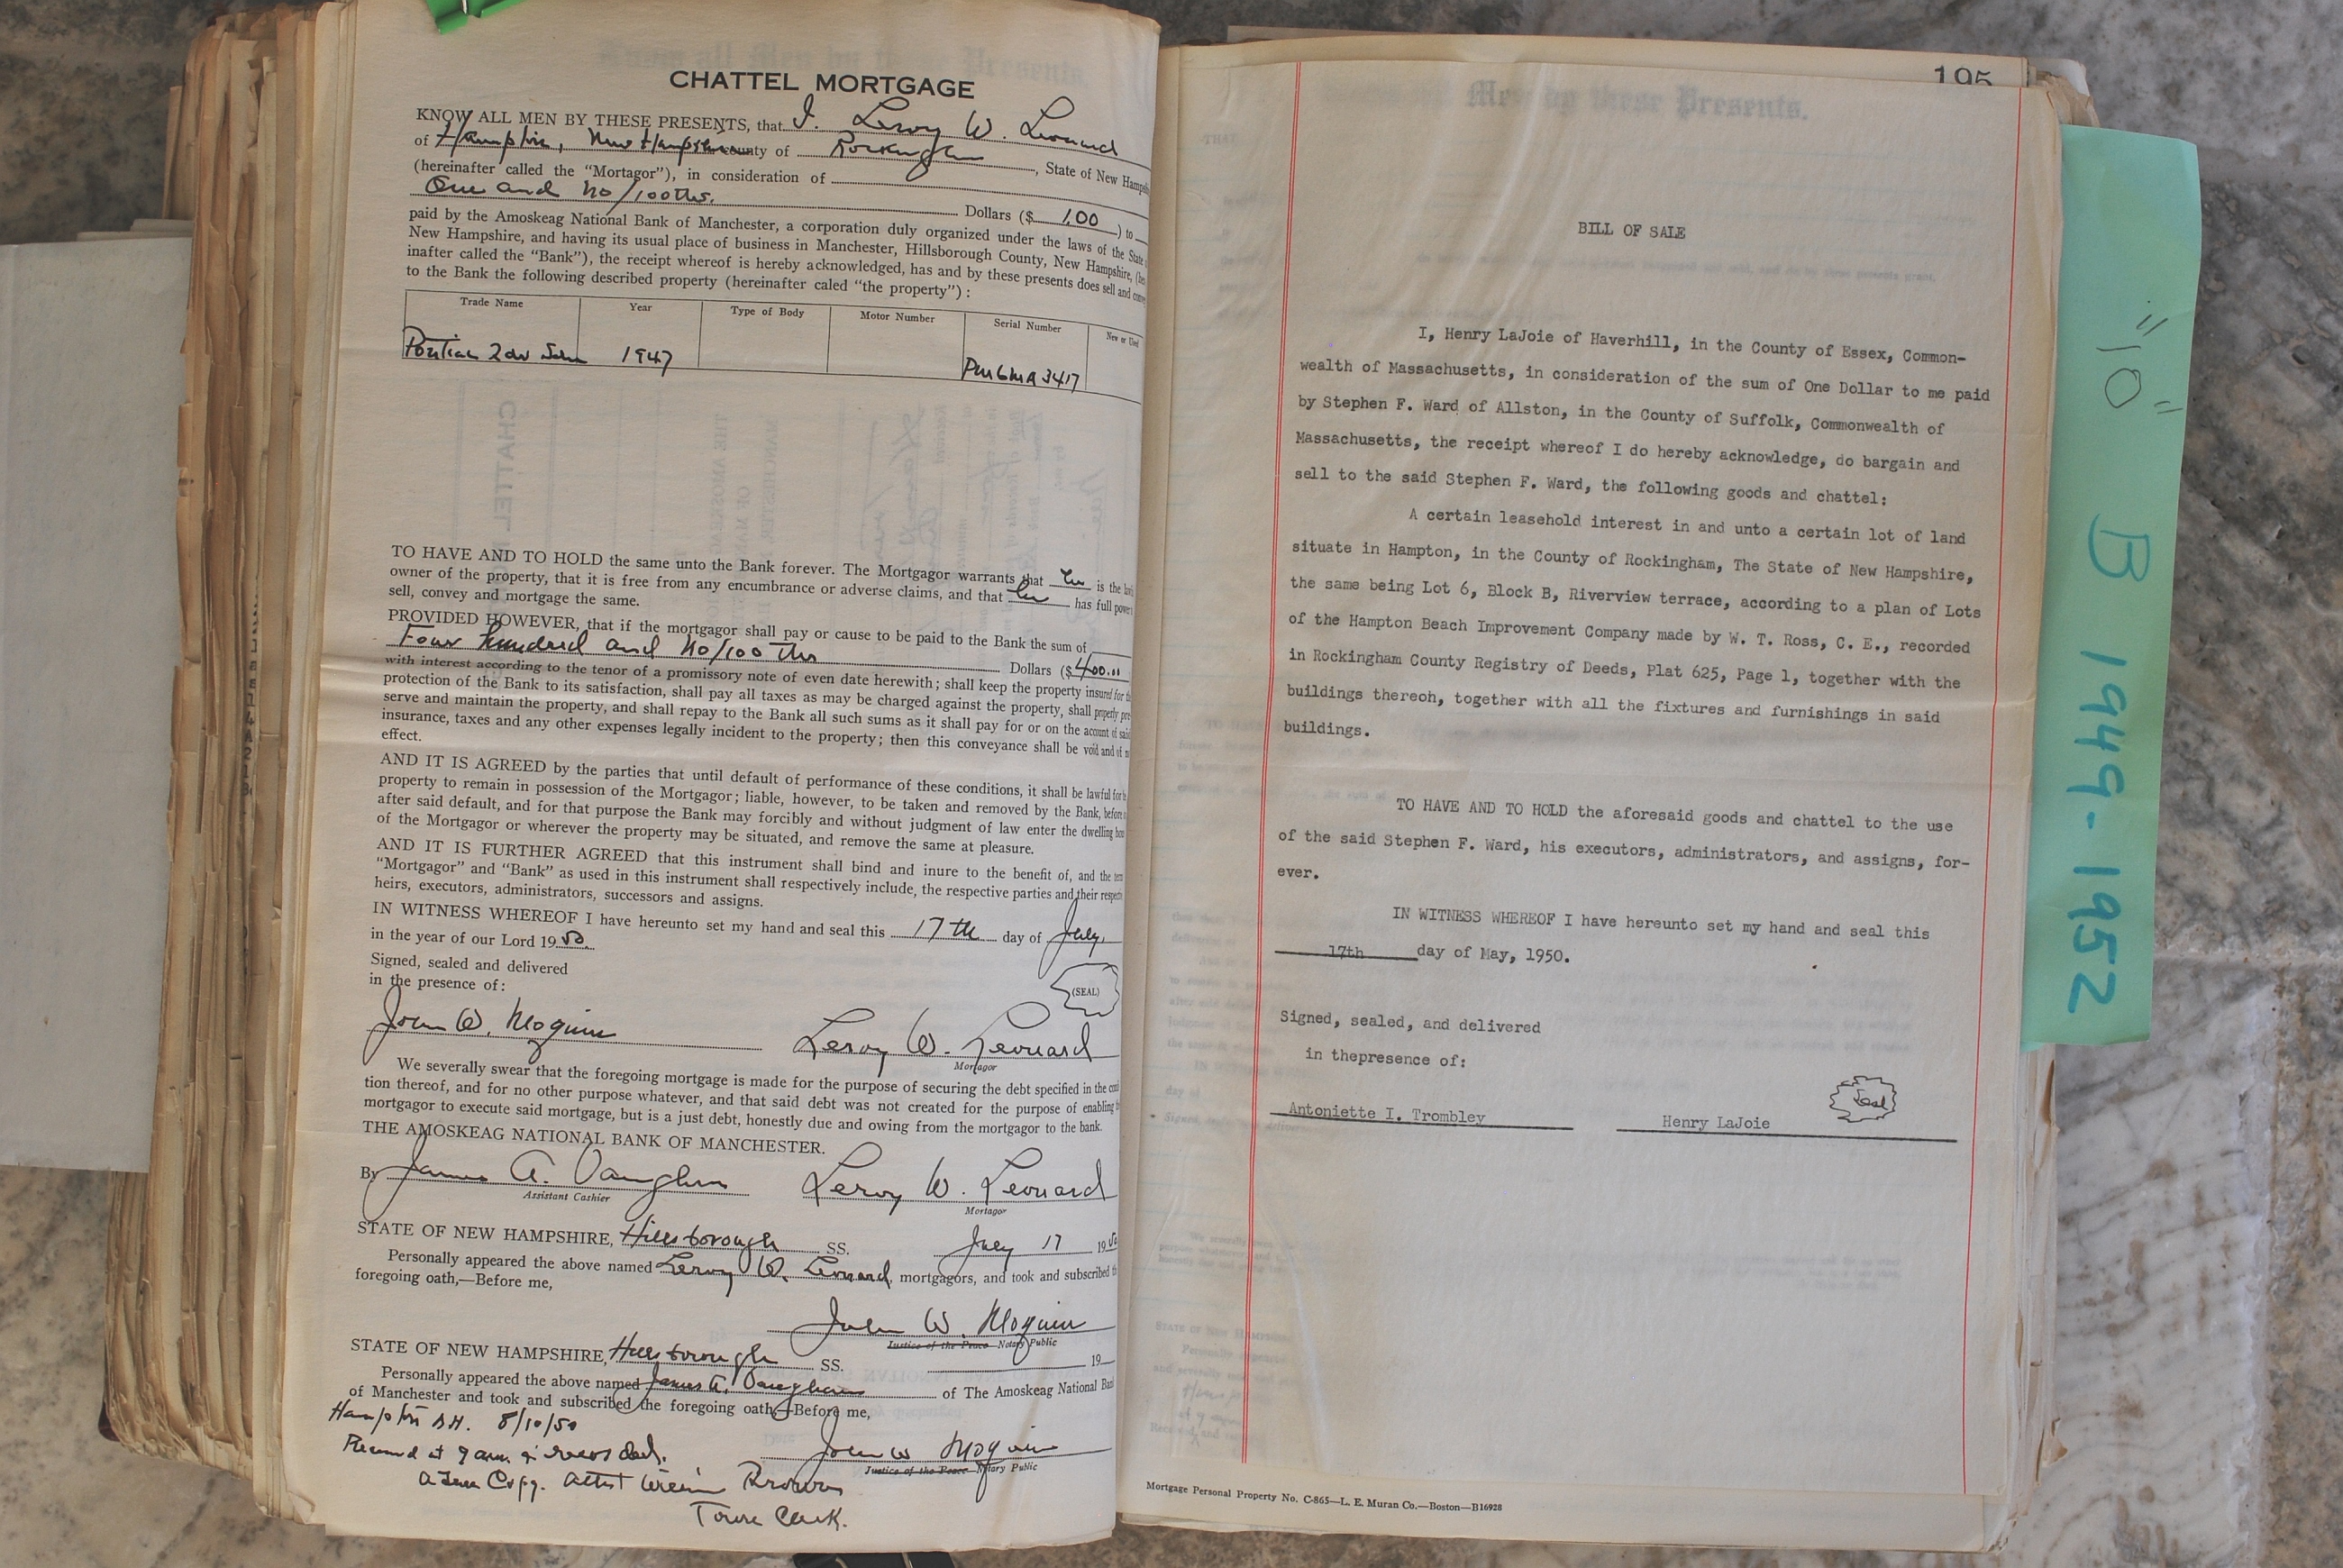 CHATTEL MORTGAGE
KNOW ALL MEN BY THESE PRESENTS, that I. Leroy W. Leonard
of Hampton, New Hampshire county of Rockingham, State of New Hampshi
(hereinafter called the "Mortagor"), in consideration of
One and no/100ths. Dollars ($ 1.00 ) to
paid by the Amoskeag National Bank of Manchester, a corporation duly organized under the laws of the State
New Hampshire, and having its usual place of business in Manchester, Hillsborough County, New Hampshire, (her
inafter called the "Bank"), the receipt whereof is hereby acknowledged, has and by these presents does sell and conve
to the Bank the following described property (hereinafter caled "the property") :
Trade Name Year Type of Body Motor Number Serial Number New or Used
Pontiac 2 dr 1947
TO HAVE AND TO HOLD the same unto the Bank forever. The Mortgagor warrants that he is the
owner of the property, that it is free from any encumbrance or adverse claims, and that he has full power
sell, convey and mortgage the same.
PROVIDED HOWEVER, that if the mortgagor shall pay or cause to be paid to the Bank the sum of
Four hundred and no/100ths Dollars ($400.
with interest according to the tenor of a promissory note of even date herewith; shall keep the property insured for
protection of the Bank to its satisfaction, shall pay all taxes as may be charged against the property, shall properly pre
serve and maintain the property, and shall repay to the Bank all such sums as it shall pay for or on the account of
insurance, taxes and any other expenses legally incident to the property; then this conveyance shall be void and of
effect.
AND IT IS AGREED by the parties that until default of performance of these conditions, it shall be lawful for
property to remain in possession of the Mortgagor; liable, however, to be taken and removed by the Bank, before
after said default, and for that purpose the Bank may forcibly and without judgment of law enter the dwelling
of the Mortgagor or wherever the property may be situated, and remove the same at pleasure.
AND IT IS FURTHER AGREED that this instrument shall bind and inure to the benefit of, and the
"Mortgagor" and "Bank" as used in this instrument shall respectively include, the respective parties and their
heirs, executors, administrators, successors and assigns.
IN WITNESS WHEREOF I have hereunto set my hand and seal this 17th day of July,
in the year of our Lord 1950.
Signed, sealed and delivered
in the presence of:
(SEAL)
John W. Moquin Leroy W. Leonard
Mortagor
We severally swear that the foregoing mortgage is made for the purpose of securing the debt specified in the
tion thereof, and for no other purpose whatever, and that said debt was not created for the purpose of enabling
mortgagor to execute said mortgage, but is a just debt, honestly due and owing from the mortgagor to the bank.
THE AMOSKEAG NATIONAL BANK OF MANCHESTER.
By James A. Vaughan Leroy W. Leonard
Assistant Cashier Mortagor
STATE OF NEW HAMPSHIRE, Hillsborough SS. July 17 1950
Personally appeared the above named Leroy W. Leonard, mortgagors, and took and subscribed
foregoing oath,—Before me,
John W. Moquin
Justice of the Peace Notary Public
STATE OF NEW HAMPSHIRE, Hillsborough SS. 19
Personally appeared the above named James A. Vaughan of The Amoskeag National Ban
of Manchester and took and subscribed the foregoing oath,—Before me,
Hampton N.H. 8/10/50
John W Moquin
Justice of the Peace Notary Public
Received at 9 a.m.
A True Copy. Attest Brown
Town Clerk.
195
Men by these Presents.
BILL OF SALE
I, Henry LaJoie of Haverhill, in the County of Essex, Common-
wealth of Massachusetts, in consideration of the sum of One Dollar to me paid
by Stephen F. Ward of Allston, in the County of Suffolk, Commonwealth of
Massachusetts, the receipt whereof I do hereby acknowledge, do bargain and
sell to the said Stephen F. Ward, the following goods and chattel:
A certain leasehold interest in and unto a certain lot of land
situate in Hampton, in the County of Rockingham, The State of New Hampshire,
the same being Lot 6, Block B, Riverview terrace, according to a plan of Lots
of the Hampton Beach Improvement Company made by W. T. Ross, C. E., recorded
in Rockingham County Registry of Deeds, Plat 625, Page 1, together with the
buildings thereoh, together with all the fixtures and furnishings in said
buildings.
TO HAVE AND TO HOLD the aforesaid goods and chattel to the use
of the said Stephen F. Ward, his executors, administrators, and assigns, for-
ever.
IN WITNESS WHEREOF I have hereunto set my hand and seal this
17th day of May, 1950.
Signed, sealed, and delivered
in thepresence of:
Seal
Antoniette I. Trombley Henry LaJoie
Mortgage Personal Property No. C-865—L. E. Muran Co.—Boston—B16928
"10" B 1949-1952